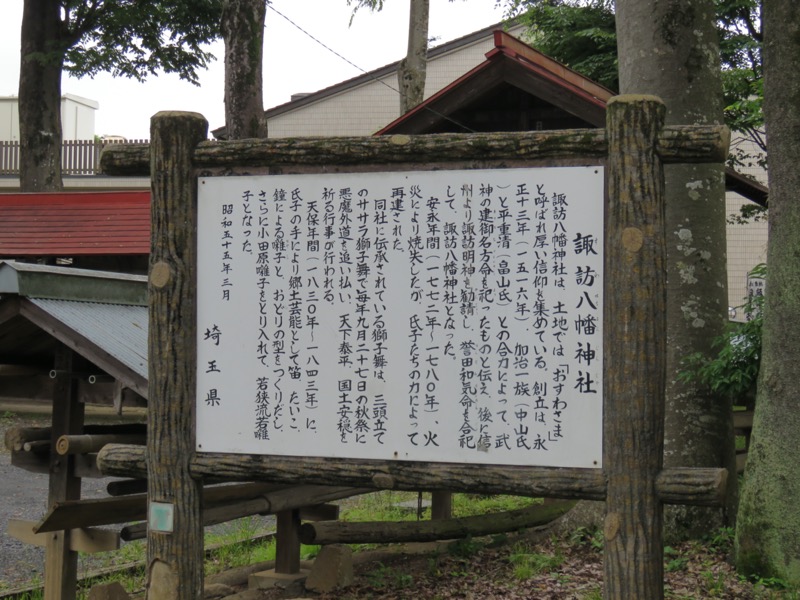 諏訪八幡神社
諏訪八幡神社は、土地では「おすわさま」
と呼ばれ厚い信仰を集めている。創立は、永
正十三年（一五一六年）、加治一族（中山氏
）と平重清（畠山氏）との合力によって、武
神の建御名方命を祀ったものと伝え、後に信
州より諏訪明神を勧請し、誉田和気命を合祀
して、諏訪八幡神社となった。
安永年間（一七七二年〜一七八〇年）、火
災により焼失したが、氏子たちの力によって
再建された。
同社に伝承されている獅子舞は、三頭立て
のササラ獅子舞で毎年九月二十七日の秋祭に
悪魔外道を追い払い、天下泰平、国土安穏を
祈る行事が行われる。
天保年間（一八三〇年〜一八四三年）に、
氏子の手により郷土芸能として笛、たいこ、
鐘による囃子と、おどりの型をつくりだし、
さらに小田原囃子をとり入れて、若狭流若囃
子となった。
昭和五十五年三月
埼玉県